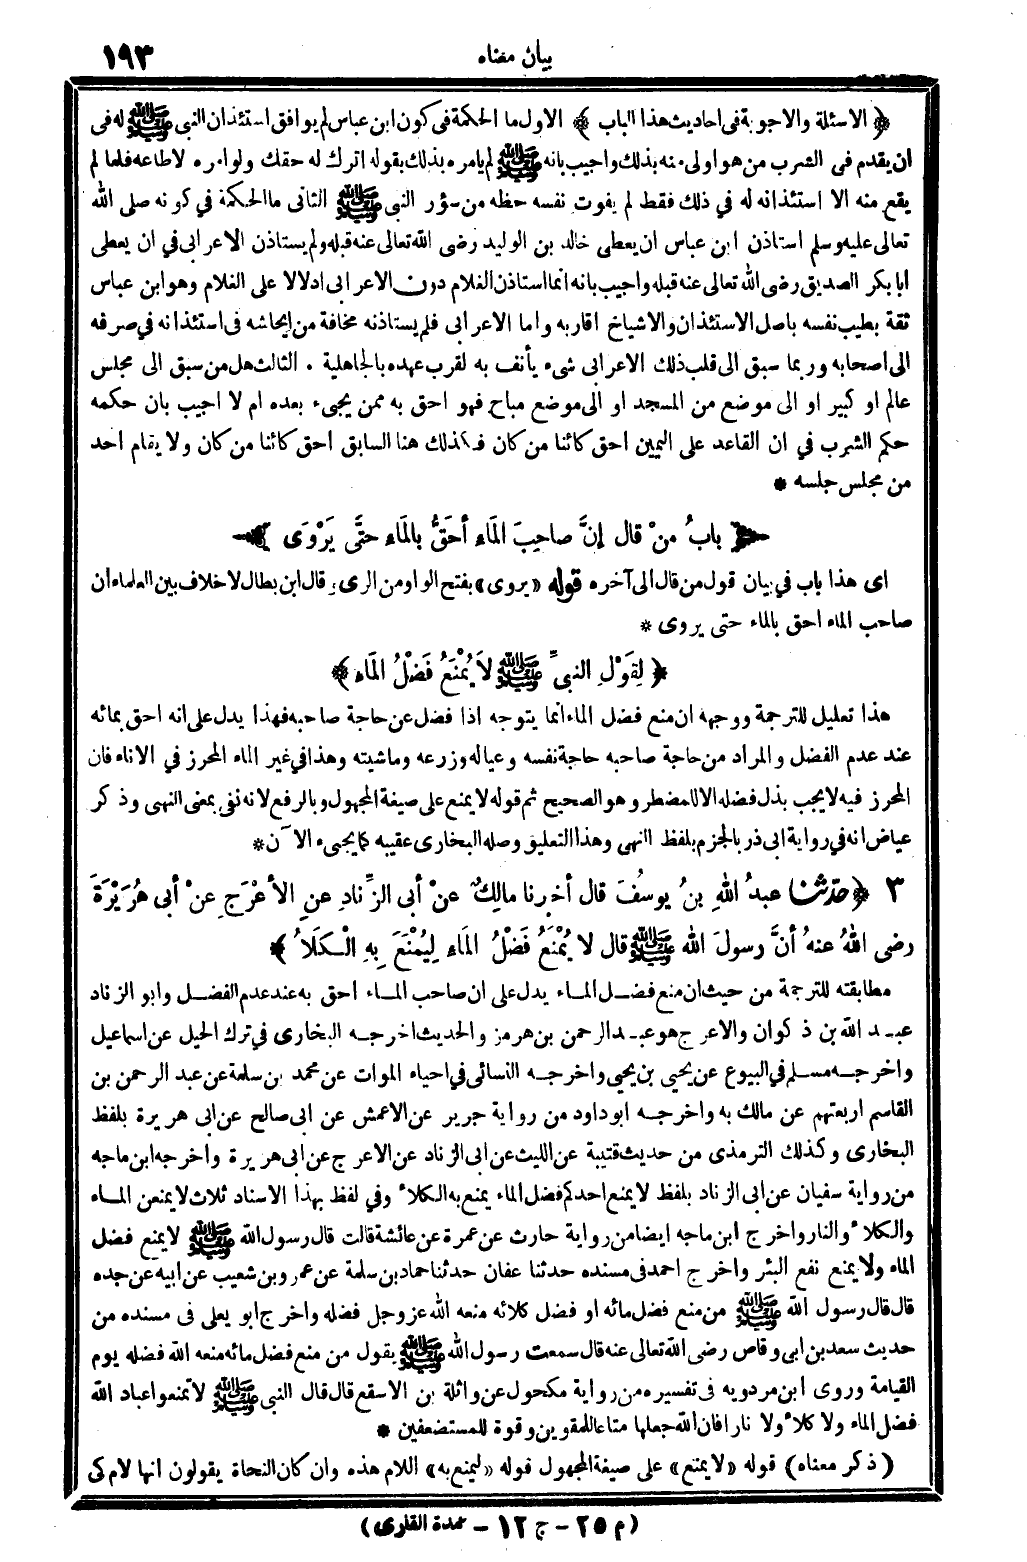 بيان معناه ١٩٣
﴿ الاسئلة والاجوبة فى احاديث هذا الباب ﴾ الاول ما الحكمة فى كون ابن عباس لم يوافق استئذان النبى ﷺ له فى
ان يقدم فى الشرب من هو اولى منه بذلك واجيب بانه ﷺ لم يامره بذلك بقوله اترك له حقك ولو امره لاطاعه فلما لم
يقع منه الا استئذانه له في ذلك فقط لم يفوت نفسه حظه من سؤر النبى ﷺ الثانى ما الحكمة في كونه صلى الله
تعالى عليه وسلم استاذن ابن عباس ان يعطى خالد بن الوليد رضى الله تعالى عنه قبله ولم يستاذن الاعرابى في ان يعطى
ابا بكر الصديق رضى الله تعالى عنه قبله واجيب بانه انما استاذن الغلام دون الاعرابى ادلالا على الغلام وهو ابن عباس
ثقة بطيب نفسه باصل الاستئذان والاشياخ اقاربه واما الاعرابى فلم يستاذنه مخافة من ايحاشه فى استئذانه في صرفه
الى اصحابه وربما سبق الى قلب ذلك الاعرابى شىء يأنف به لقرب عهده بالجاهلية . الثالث هل من سبق الى مجلس
عالم او كبير او الى موضع من المسجد او الى موضع مباح فهو احق به ممن يجىء بعده ام لا اجيب بان حكمه
حكم الشرب في ان القاعد على اليمين احق كائنا من كان فكذلك هنا السابق احق كائنا من كان ولا يقام احد
من مجلس جلسه *
﴿ بابُ مَنْ قال إنَّ صاحِبَ المَاءِ أحَقُّ بالمَاءِ حتَّى يَرْوَى ﴾
اى هذا باب في بيان قول من قال الى آخره قوله «يروى» بفتح الواو من الرى، قال ابن بطال لا خلاف بين العلماء ان
صاحب الماء احق بالماء حتى يروى *
﴿ لِقَوْلِ النبىِّ ﷺ لاَ يُمْنَعُ فَضْلُ المَاءِ ﴾
هذا تعليل للترجمة ووجهه ان منع فضل الماء انما يتوجه اذا فضل عن حاجة صاحبه فهذا يدل على انه احق بمائه
عند عدم الفضل والمراد من حاجة صاحبه حاجة نفسه وعياله وزرعه وماشيته وهذا في غير الماء المحرز في الاناء فان
المحرز فيه لا يجب بذل فضله الا للمضطر وهو الصحيح ثم قوله لا يمنع على صيغة المجهول وبالرفع لانه نفى بمعنى النهى وذكر
عياض انه في رواية ابى ذر بالجزم بلفظ النهى وهذا التعليق وصله البخارى عقيبه كما يجىء الآن*
٣ ﴿ حدّثنا عبدُ اللهِ بنُ يوسُفَ قال أخبرنا مالِكٌ عنْ أبى الزِّنادِ عنِ الأعْرَجِ عنْ أبى هُرَيْرَةَ
رضى اللهُ عنهُ أنَّ رسولَ الله ﷺ قال لا يُمْنَعُ فَضْلُ المَاءِ لِيُمْنَعَ بِهِ الْكَلَأُ ﴾
مطابقته للترجمة من حيث ان منع فضل الماء يدل على ان صاحب الماء احق به عند عدم الفضل وابو الزناد
عبد الله بن ذكوان والاعرج هو عبد الرحمن بن هرمز والحديث اخرجه البخارى في ترك الحيل عن اسماعيل
واخرجه مسلم في البيوع عن يحيى بن يحيى واخرجه النسائى في احياء الموات عن محمد بن سلمة عن عبد الرحمن بن
القاسم اربعتهم عن مالك به واخرجه ابو داود من رواية جرير عن الاعمش عن ابى صالح عن ابى هريرة بلفظ
البخارى وكذلك الترمذى من حديث قتيبة عن الليث عن ابى الزناد عن الاعرج عن ابى هريرة واخرجه ابن ماجه
من رواية سفيان عن ابى الزناد بلفظ لا يمنع احدكم فضل الماء يمنع به الكلأ وفي لفظ بهذا الاسناد ثلاث لا يمنعن الماء
والكلأ والنار واخرج ابن ماجه ايضا من رواية حارث عن عمرة عن عائشة قالت قال رسول الله ﷺ لا يمنع فضل
الماء ولا يمنع نفع البئر واخرج احمد فى مسنده حدثنا عفان حدثنا حماد بن سلمة عن عمرو بن شعيب عن ابيه عن جده
قال قال رسول الله ﷺ من منع فضل مائه او فضل كلائه منعه الله عز وجل فضله واخرج ابو يعلى فى مسنده من
حديث سعد بن ابى وقاص رضى الله تعالى عنه قال سمعت رسول الله ﷺ يقول من منع فضل مائه منعه الله فضله يوم
القيامة وروى ابن مردويه فى تفسيره من رواية مكحول عن واثلة بن الاسقع قال قال النبى ﷺ لا تمنعوا عباد الله
فضل الماء ولا كلأ ولا نارا فان الله جعلها متاعا للمقوين وقوة للمستضعفين *
(ذكر معناه) قوله «لا يمنع» على صيغة المجهول قوله «ليمنع به» اللام هذه وان كان النحاة يقولون انها لام كى
(م ٢٥ – ج ١٢ – عمدة القارى)